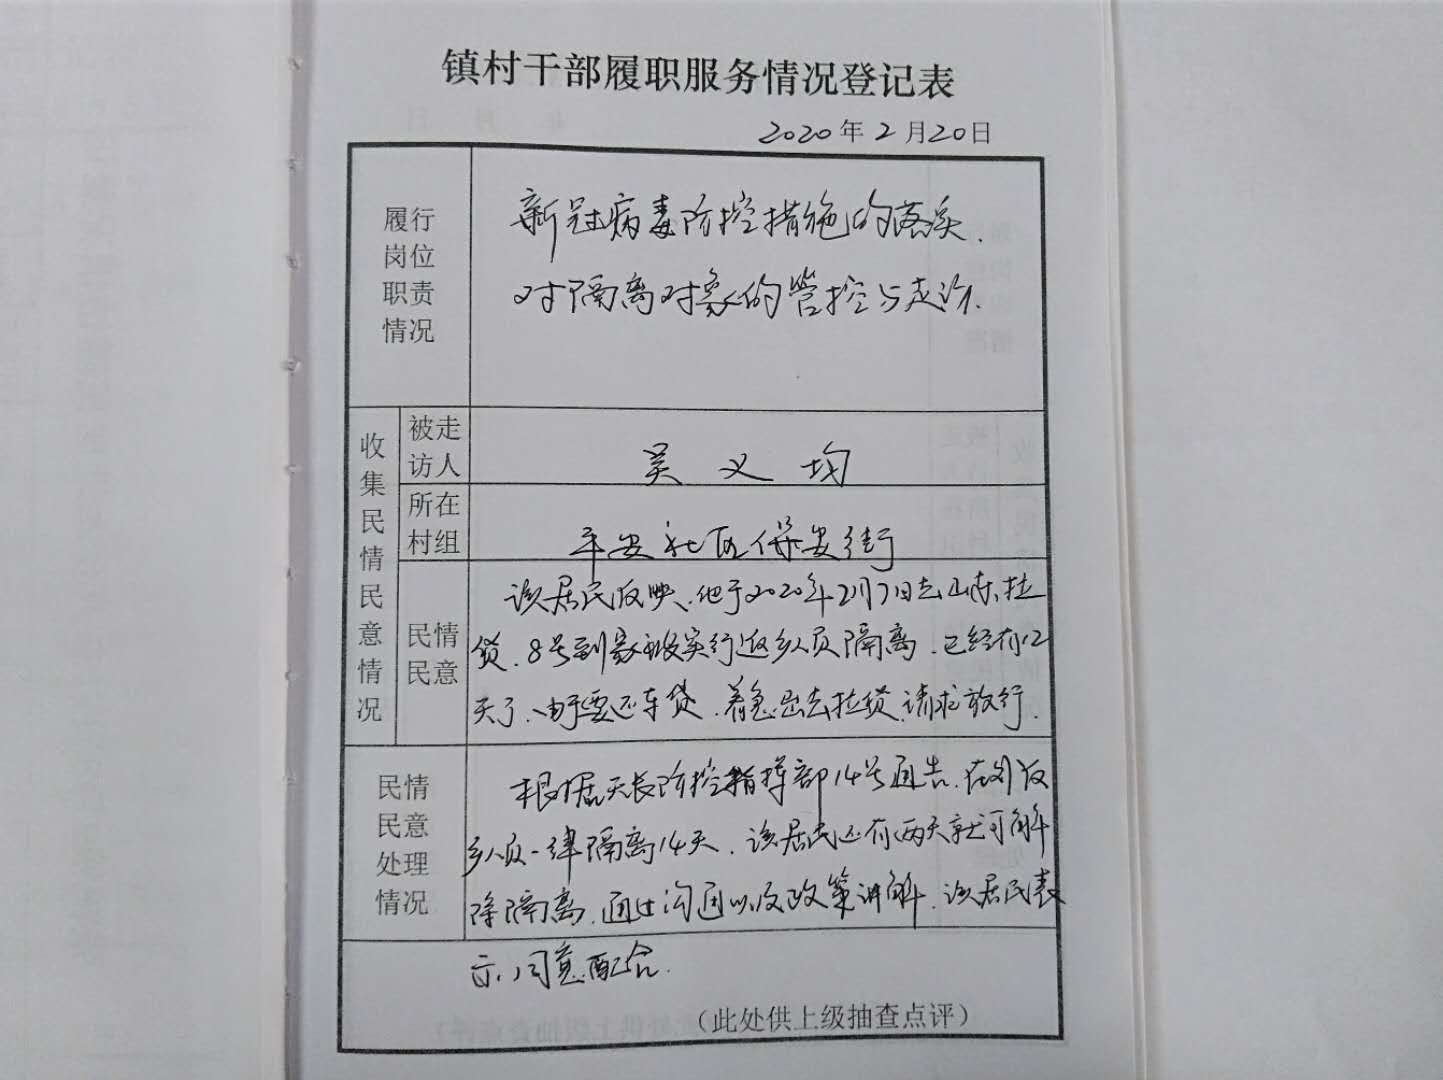 镇村干部履职服务情况登记表
2020年2月20日
履行
岗位
职责
情况
新冠病毒防控措施的落实.
对隔离对象的管控与走访.
收集民情民意情况
被走
访人
吴义均
所在
村组
平安社区保安街
民情
民意
该居民反映、他于2020年2月7日去山东拉
货.8号到家被实行返乡人员隔离.已经有12
天了、由于要还车贷.着急出去拉货.请求放行.
民情
民意
处理
情况
根据天长防控指挥部14号通告.在外返
乡人员一律隔离14天.该居民还有两天就可解
除隔离.通过沟通以及政策讲解.该居民表
示同意配合.
（此处供上级抽查点评）